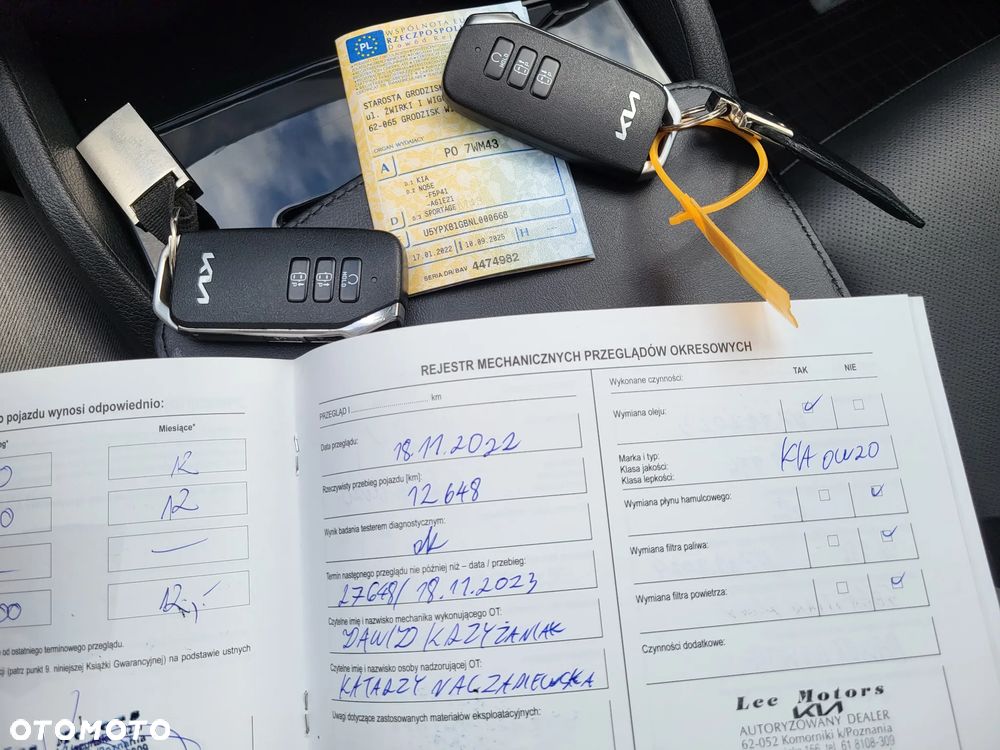 PL
WSPÓLNOTA
RZECZPOSPOL
Dowód Rej
STAROSTA GRODZISK
ul. ŻWIRKI I WIGU
62-065 GRODZISK W
ORGAN WYDAJĄCY
A PO 7WM43
D.1 KIA
D.2 NQ5E
-F5P41
-A61EZ1
D D.3 SPORTAGE
U5YPX81GBNL000668
17.01.2022 I 10.09.2025 H
SERIA DR/BAV 4474982
HOLD
KIA
KIA
HOLD
o pojazdu wynosi odpowiednio:
Miesiące*
12
12
—
12
od ostatniego terminowego przeglądu.
cji (patrz punkt 9. niniejszej Książki Gwarancyjnej) na podstawie ustnych
REJESTR MECHANICZNYCH PRZEGLĄDÓW OKRESOWYCH
PRZEGLĄD I .......................... km
Data przeglądu:
18.11.2022
Rzeczywisty przebieg pojazdu [km]:
12648
Wynik badania testerem diagnostycznym:
ok
Termin następnego przeglądu nie później niż – data / przebieg:
27648/ 18.11.2023
Czytelne imię i nazwisko mechanika wykonującego OT:
DAWID KRZYŻANIAK
Czytelne imię i nazwisko osoby nadzorującej OT:
Uwagi dotyczące zastosowanych materiałów eksploatacyjnych:
Wykonane czynności: TAK NIE
Wymiana oleju:
Marka i typ:
Klasa jakości:
Klasa lepkości:
KIA 0W20
Wymiana płynu hamulcowego:
Wymiana filtra paliwa:
Wymiana filtra powietrza:
Czynności dodatkowe:
Lee Motors
KIA
AUTORYZOWANY DEALER
62-052 Komorniki k/Poznania
61 8108-309
OTOMOTO